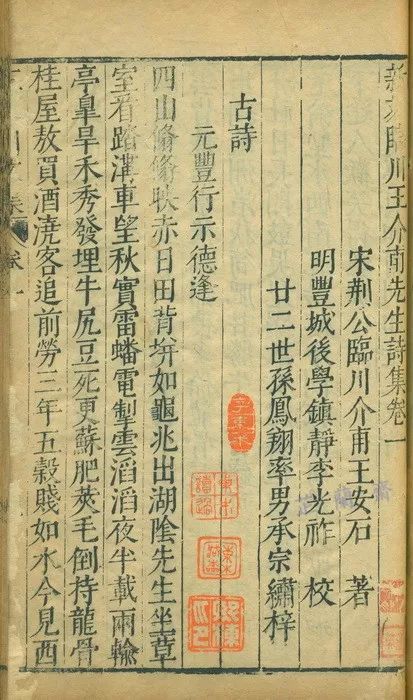 新刻臨川王介甫先生詩集卷一
宋荆公臨川介甫王安石 著
明豐城後學鎮靜李光祚 校
廿二世孫鳳翔率男承宗繡梓
古詩
元豐行示德逢
四山翛翛映赤日田背坼如龜兆出湖陰先生坐草
室看踏溝車望秋實雷蟠電掣雲滔滔夜半載雨輸
亭臯旱禾秀發埋牛尻豆死更蘇肥莢毛倒持龍骨
桂屋敖買酒澆客追前勞三年五穀賤如水今見西
卷一